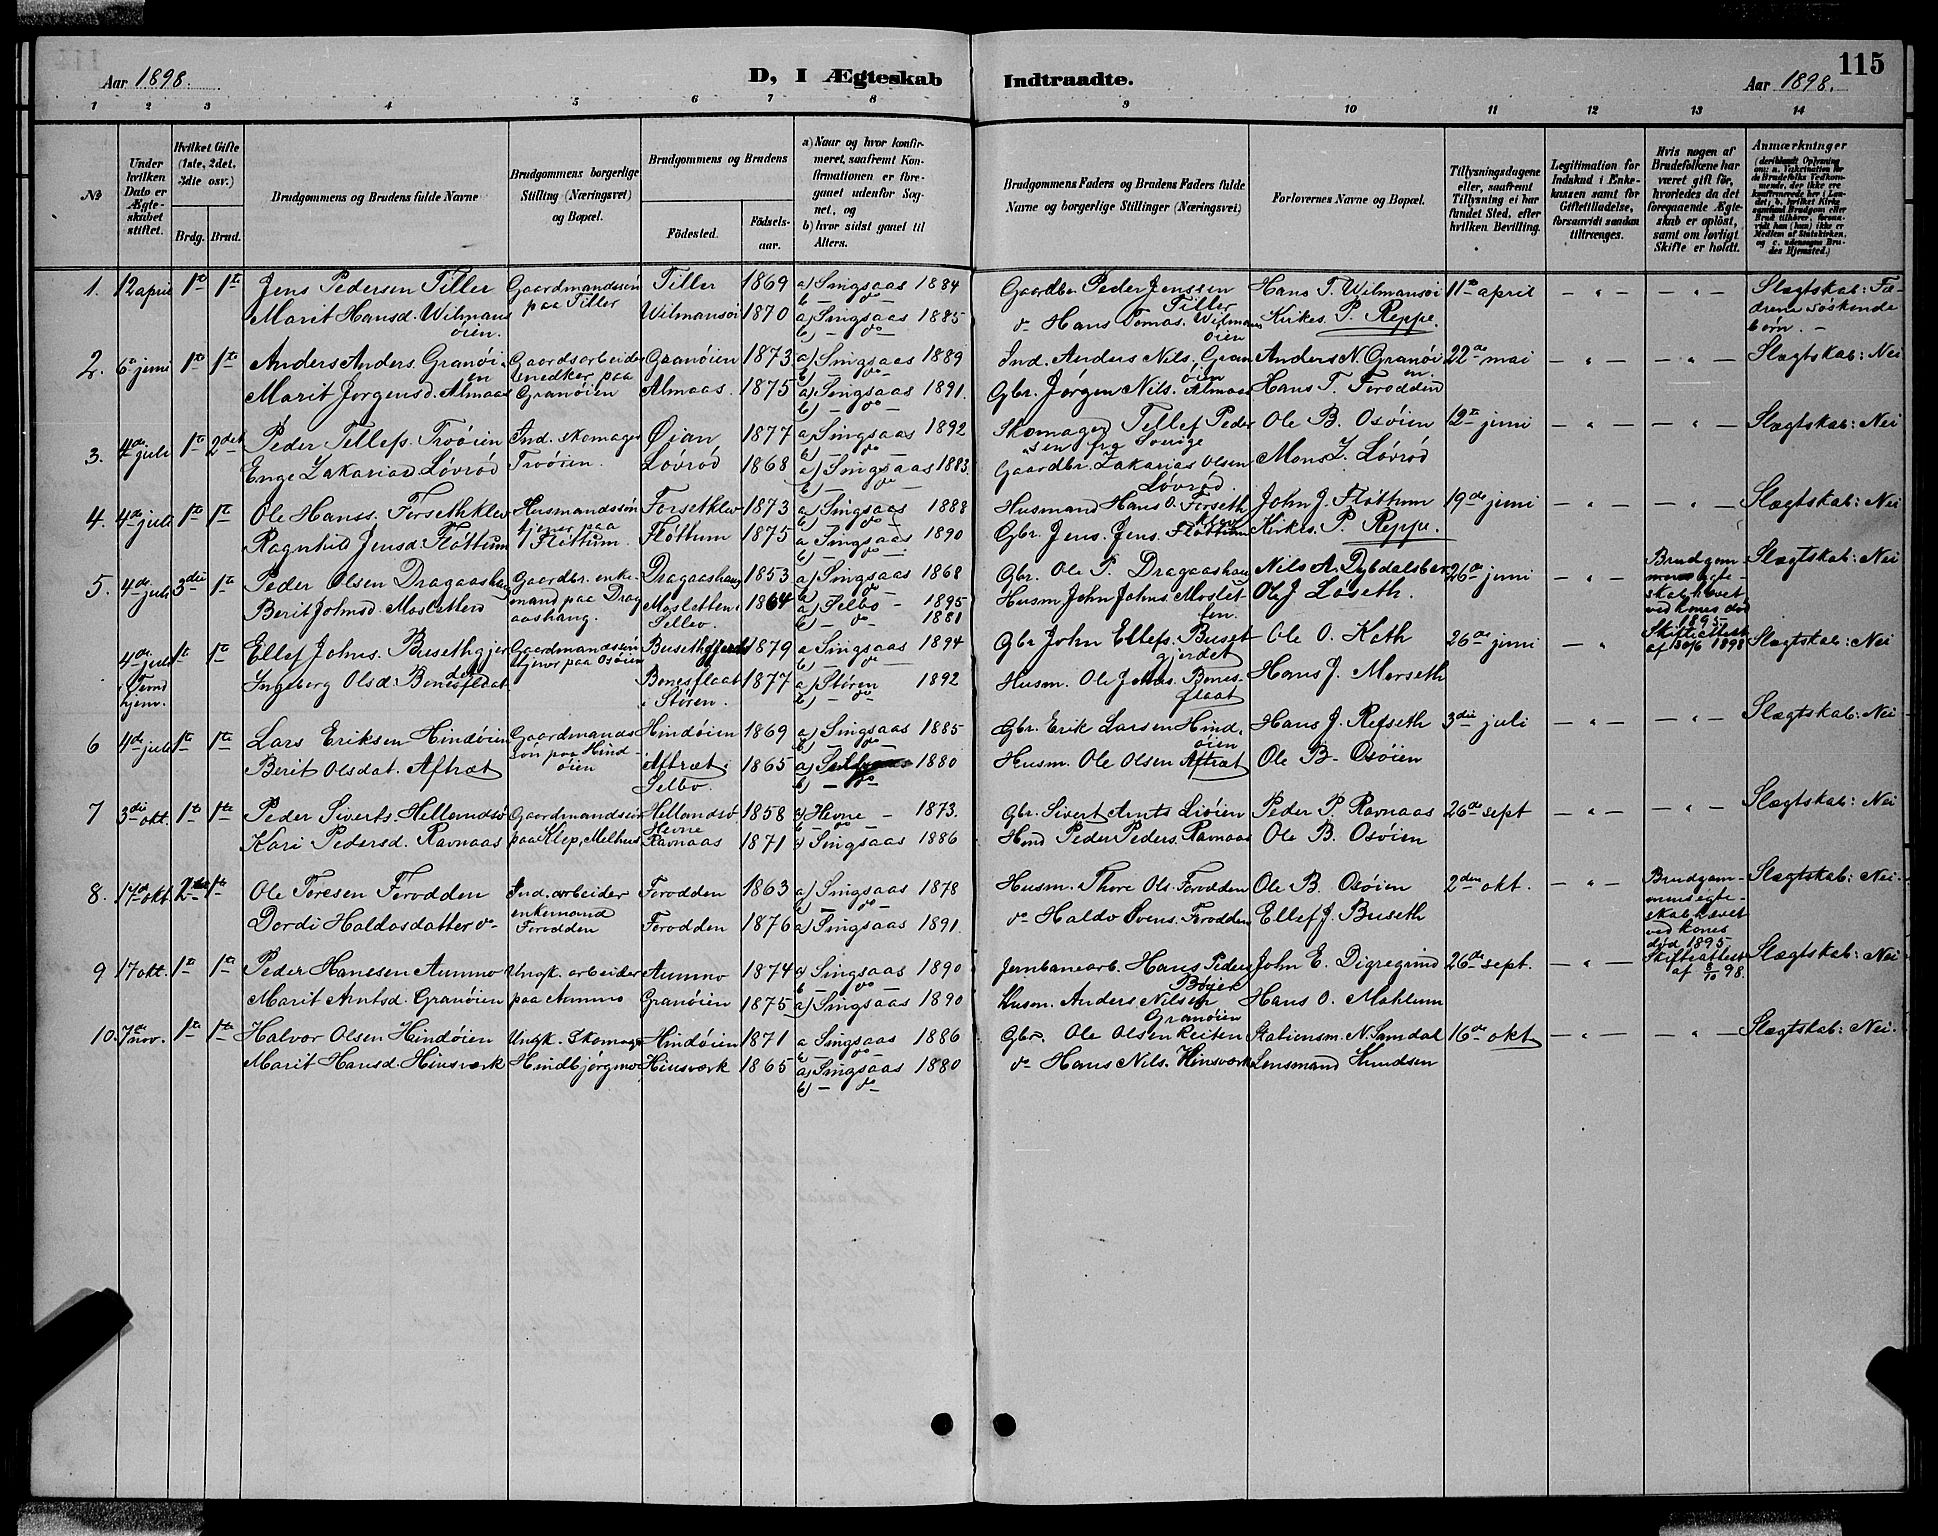 115
Aar 1898.
D, I Ægteskab Indtraadte.
Aar 1898.
1 2 3 4 5 6 7 8 9 10 11 12 13 14
No
Under hvilken Dato er Ægteskabet stiftet.
Hvilket Gifte (1ste, 2det, 3die osv.)
Brdg. Brud.
Brudgommens og Brudens fulde Navne
Brudgommens borgerlige Stilling (Næringsvei) og Bopæl.
Brudgommens og Brudens
Födested.
Födsels-aar.
a) Naar og hvor konfirmeret, saafremt Konfirmationen er foregaaet udenfor Sognet, og
b) hvor sidst gaaet til Alters.
Brudgommens Faders og Brudens Faders fulde Navne og borgerlige Stillinger (Næringsvei)
Forlovernes Navne og Bopæl.
Tillysningsdagene eller, saafremt Tillysning ei har fundet Sted, efter hvilken Bevilling.
Legitimation for Indskud i Enkekassen samt for Giftetilladelse, forsaavidt saadan tiltrænges.
Hvis nogen af Brudefolkene har været gift för, hvorledes da det foregaaende Ægteskab er oplöst, samt om lovligt Skifte er holdt.
Anmærkninger
1. 12 april 1ste 1ste Jens Pedersen Tiller Gaardmandssön paa Tiller Tiller 1869 a) Singsaas 1884 b) do Gaardbr Peder Jenssen Tiller Hans T. Wilmansöi 11te april — " — — " — Slægtskab: Fædrene Söskende börn. —
Marit Hansd. Wilmansöien. Wilmansöi 1870 a) Singsaas 1885 b) do do Hans Tomas. Wilmansöien Kirkes. P. Reppe.
2. 6te juni 1ste 1ste Anders Anders. Granöien Gaardsarbeider Snedker paa Granöien Granöien 1873 a) Singsaas 1889 b) do Ind. Anders Nils. Granöien Anders N. Granöien 22de mai — " — — " — Slægtskab: Nei
Marit Jörgensd. Almaas Almaas. 1875 a) Singsaas 1891. b) do Gbr. Jörgen Nils. Almaas Hans T. Forodden
3. 4de juli 1ste 2det Peder Tellefs. Trööien Ind. skomager Trööien. Öian 1877 a) Singsaas 1892 b) do Skomager Tellef Pedersen fra Sverige Ole B. Osöien 12te juni — " — — " — Slægtskab: Nei
Enge Zakariasd Lövröd Lövröd 1868 a) Singsaas 1883. b) do Gaardbr. Zakarias Olsen Lövröd Mons Z. Lövröd
4. 4de juli 1ste 1ste Ole Hanss. Forsethklev Husmandssön tjener paa Flöttum. Forsetklev 1873 a) Singsaas 1888 b) do Husmand Hans O. Forsethklev John J. Flöttum 19de juni — " — — " — Slægtskab: Nei
Ragnhild Jensd. Flöttum Flöttum 1875 a) Singsaas 1890 b) do Gbr. Jens. Jens. Flöttum Kirkes. P. Reppe.
5. 4de juli 3die 1ste Peder Olsen Dragaashaug Gaardbr. enkemand paa Dragaashaug. Dragaashaug 1853 a) Singsaas 1868 b) do Gbr. Ole P. Dragaashaug Nils A. Dybdalsber 26de juni — " — Brudgommens ægteskab hævet ved kones död 1895. Skifteattest af 30/6 1898 Slægtskab: Nei
Berit Johnsd. Mosletten Mosletten i Selbo 1864 a) Selbo - 1895 b) do 1881 Husm John Johns Mosletten. Ole J. Löseth.
4de juli i Trondhjem. 1ste 1ste Ellef Johns. Busethgjerdet Gaardmandssön tjener paa Osöien Busethgjerdet 1879 a Singsaas 1894 b) do Gbr John Ellefs. Busetgjerdet Ole O. Koth 26de juni — " — Slægtskab: Nei
Ingeborg Olsd. Bonesflaat Bonesflaat i Stören. 1877 a) Stören 1892 b) do Husm. Ole Johns. Bonesflaat Hans J. Morseth
6 4de juli 1ste 1ste Lars Eriksen Hindöien Gaardmandssön paa Hindöien Hindöien 1869 a) Singsaas 1885 b) do Gbr. Erik Larsen Hindöien Hans J. Refseth 3die juli — " — — " — Slægtskab: Nei
Berit Olsdat. Aftræt Aftræt i Selbo. 1865 1880 b) — do Husm. Ole Olsen Aftræt Ole B. Osöien
7 3die okt. 1ste 1ste Peder Siverts. Hellandsö Gaardmandssön paa Klep, Melhus Hellandsö Hevne 1858 a) Hevne - 1873. b) do Gbr. Sivert Arnts Liöien Peder P. Ravnaas 26de sept — " — — " — Slægtskab: Nei
Kari Pedersd. Ravnaas Ravnaas 1871 a) Singsaas 1886 Peder Peders. Ravnaas Ole B. Osöien
8. 17de okt. 2det 1ste Ole Toresen Forodden Ind. arbeider enkemand Forodden Forodden 1863 a) Singsaas 1878 b) do Husm. Thore Ols. Forodden Ole B. Osöien 2den okt. — " — Brudgommens ægteskab hævet ved kones död 1895. Skifteattest af 8/10 98. Slægtskab: Nei.
Dordi Haldosdatter do Forodden 1876 a) Singsaas 1891. do Haldo Svens. Forodden Ellef J. Buseth
9 17 okt. 1ste 1ste Peder Hansen Aunmo Ungk. arbeider paa Aunmo Aunmo 1874 a) Singsaas 1890 b) do Jernbanearb. Hans Peders John E. Digregrind 26de sept. — " — — " — Slægtskab: Nei
Marit Arntsd. Granöien Granöien 1875 a) Singsaas 1890 Husm. Anders Nilsen Granöien Hans O. Mohlum
10. 7de nov. 1ste 1ste Halvor Olsen Hindöien Ungk. Skomager Hindbjörgmo Hindöien 1871 a Singsaas 1886 b) do Gbr. Ole Olsen Reiten Stationsm. N. Samdal 16de okt — " — — " — Slægtskab: Nei.
Marit Hansd. Hinsværk Hinsværk 1865 a) Singsaas 1880 b) — do do Hans Nils. Hinsværk Lensmand Knudsen